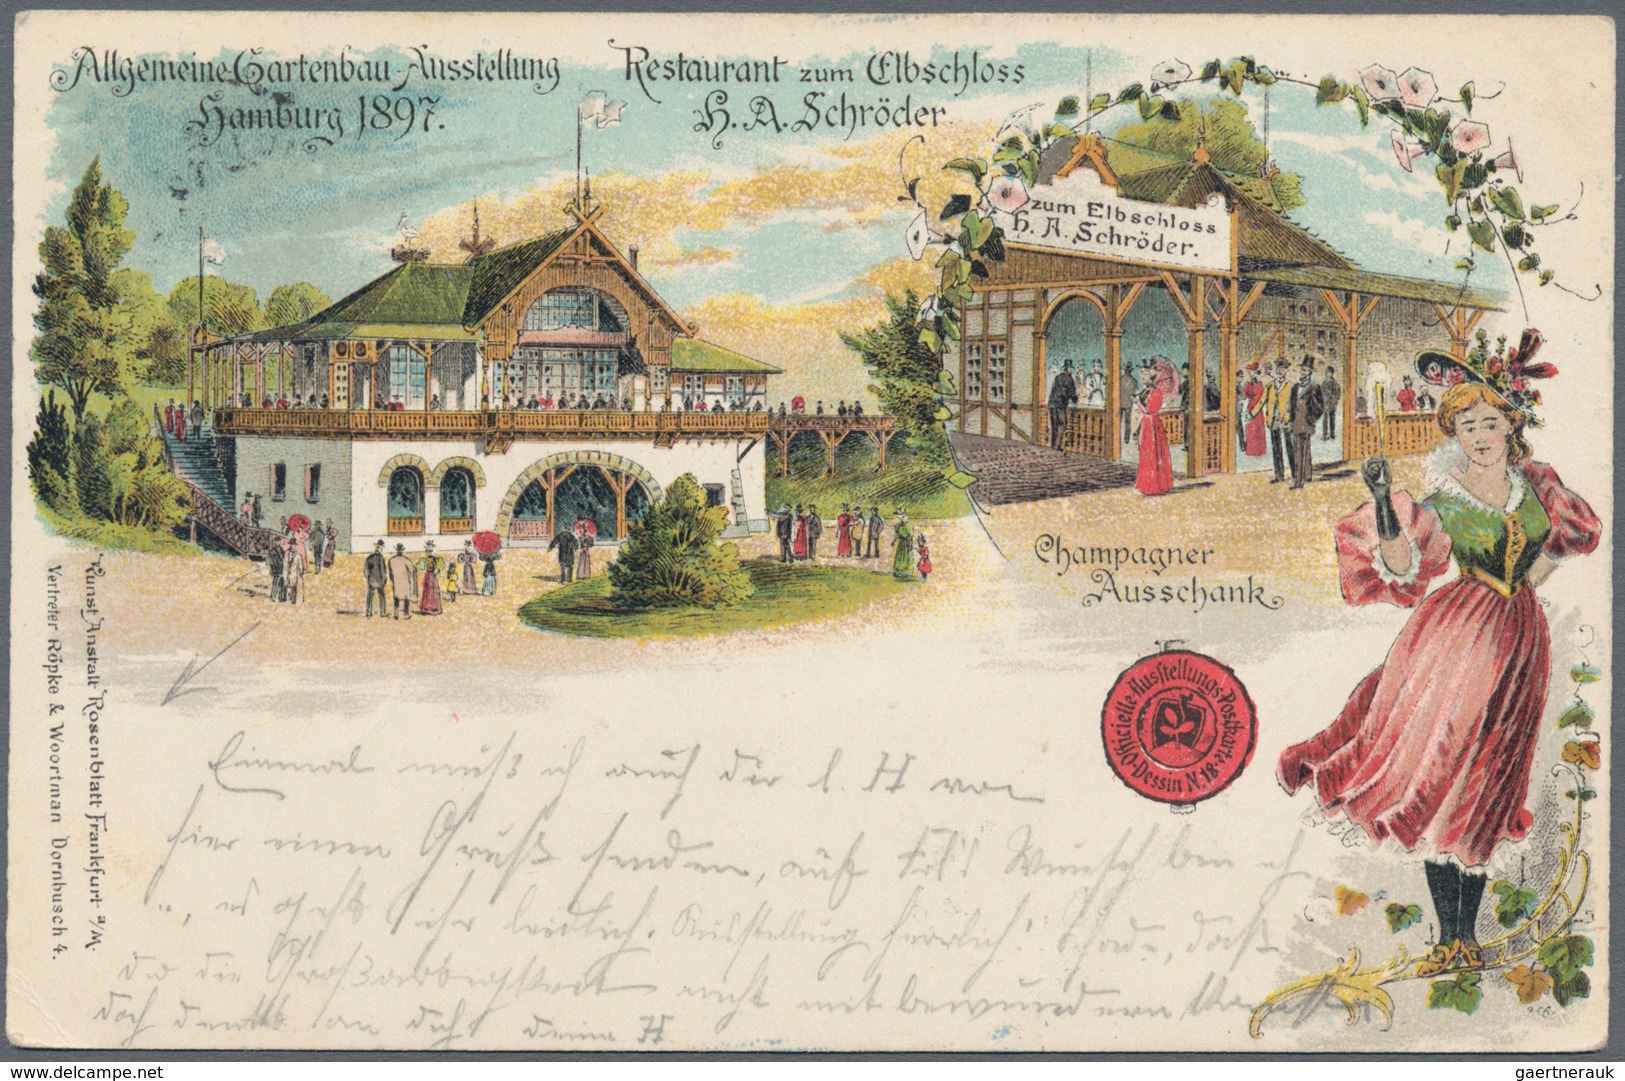 Allgemeine Gartenbau-Ausstellung
Hamburg 1897.
Restaurant zum Elbschloss
H. A. Schröder
zum Elbschloss
H. A. Schröder.
Champagner
Ausschank
Officielle Ausstellungs-Postkarte
Dessin N. 18
Kunst Anstalt Rosenblatt Frankfurt a/M.
Vertreter Röpke & Woortman Dornbusch 4.
Einmal muß ich auch dir l. H von
hier einen Gruß senden, auf Wunsch bin ich
es geht ihr leidlich. Ausstellung herrlich! Schade, daß
du die nicht mit bewundern
doch denkt an dich deine H
gaertnerauk
©www.delcampe.net